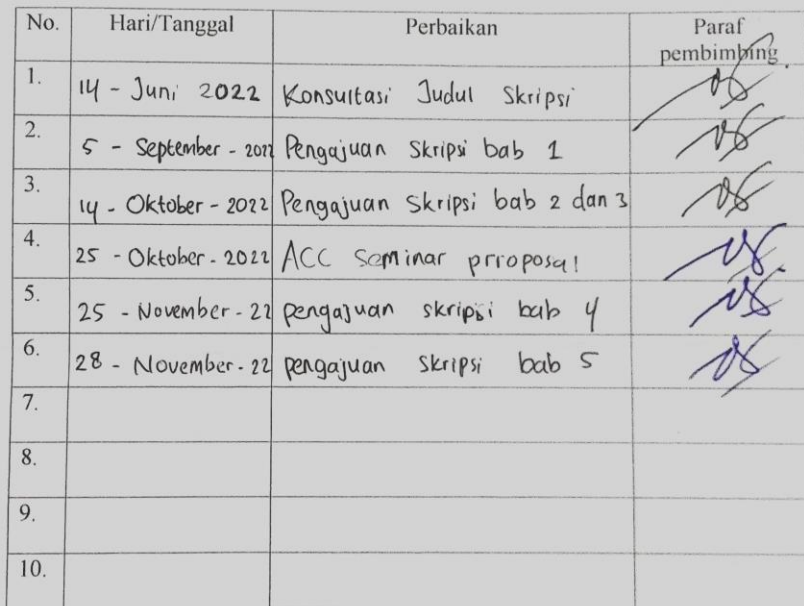 No. Hari/Tanggal Perbaikan Paraf
pembimbing
1. 14 - Juni 2022 Konsultasi Judul Skripsi
2. 5 - September - 2022 Pengajuan Skripsi bab 1
3. 14 - Oktober - 2022 Pengajuan Skripsi bab 2 dan 3
4. 25 - Oktober - 2022 ACC Seminar prroposal
5. 25 - November - 22 pengajuan skripsi bab 4
6. 28 - November - 22 pengajuan skripsi bab 5
7.
8.
9.
10.